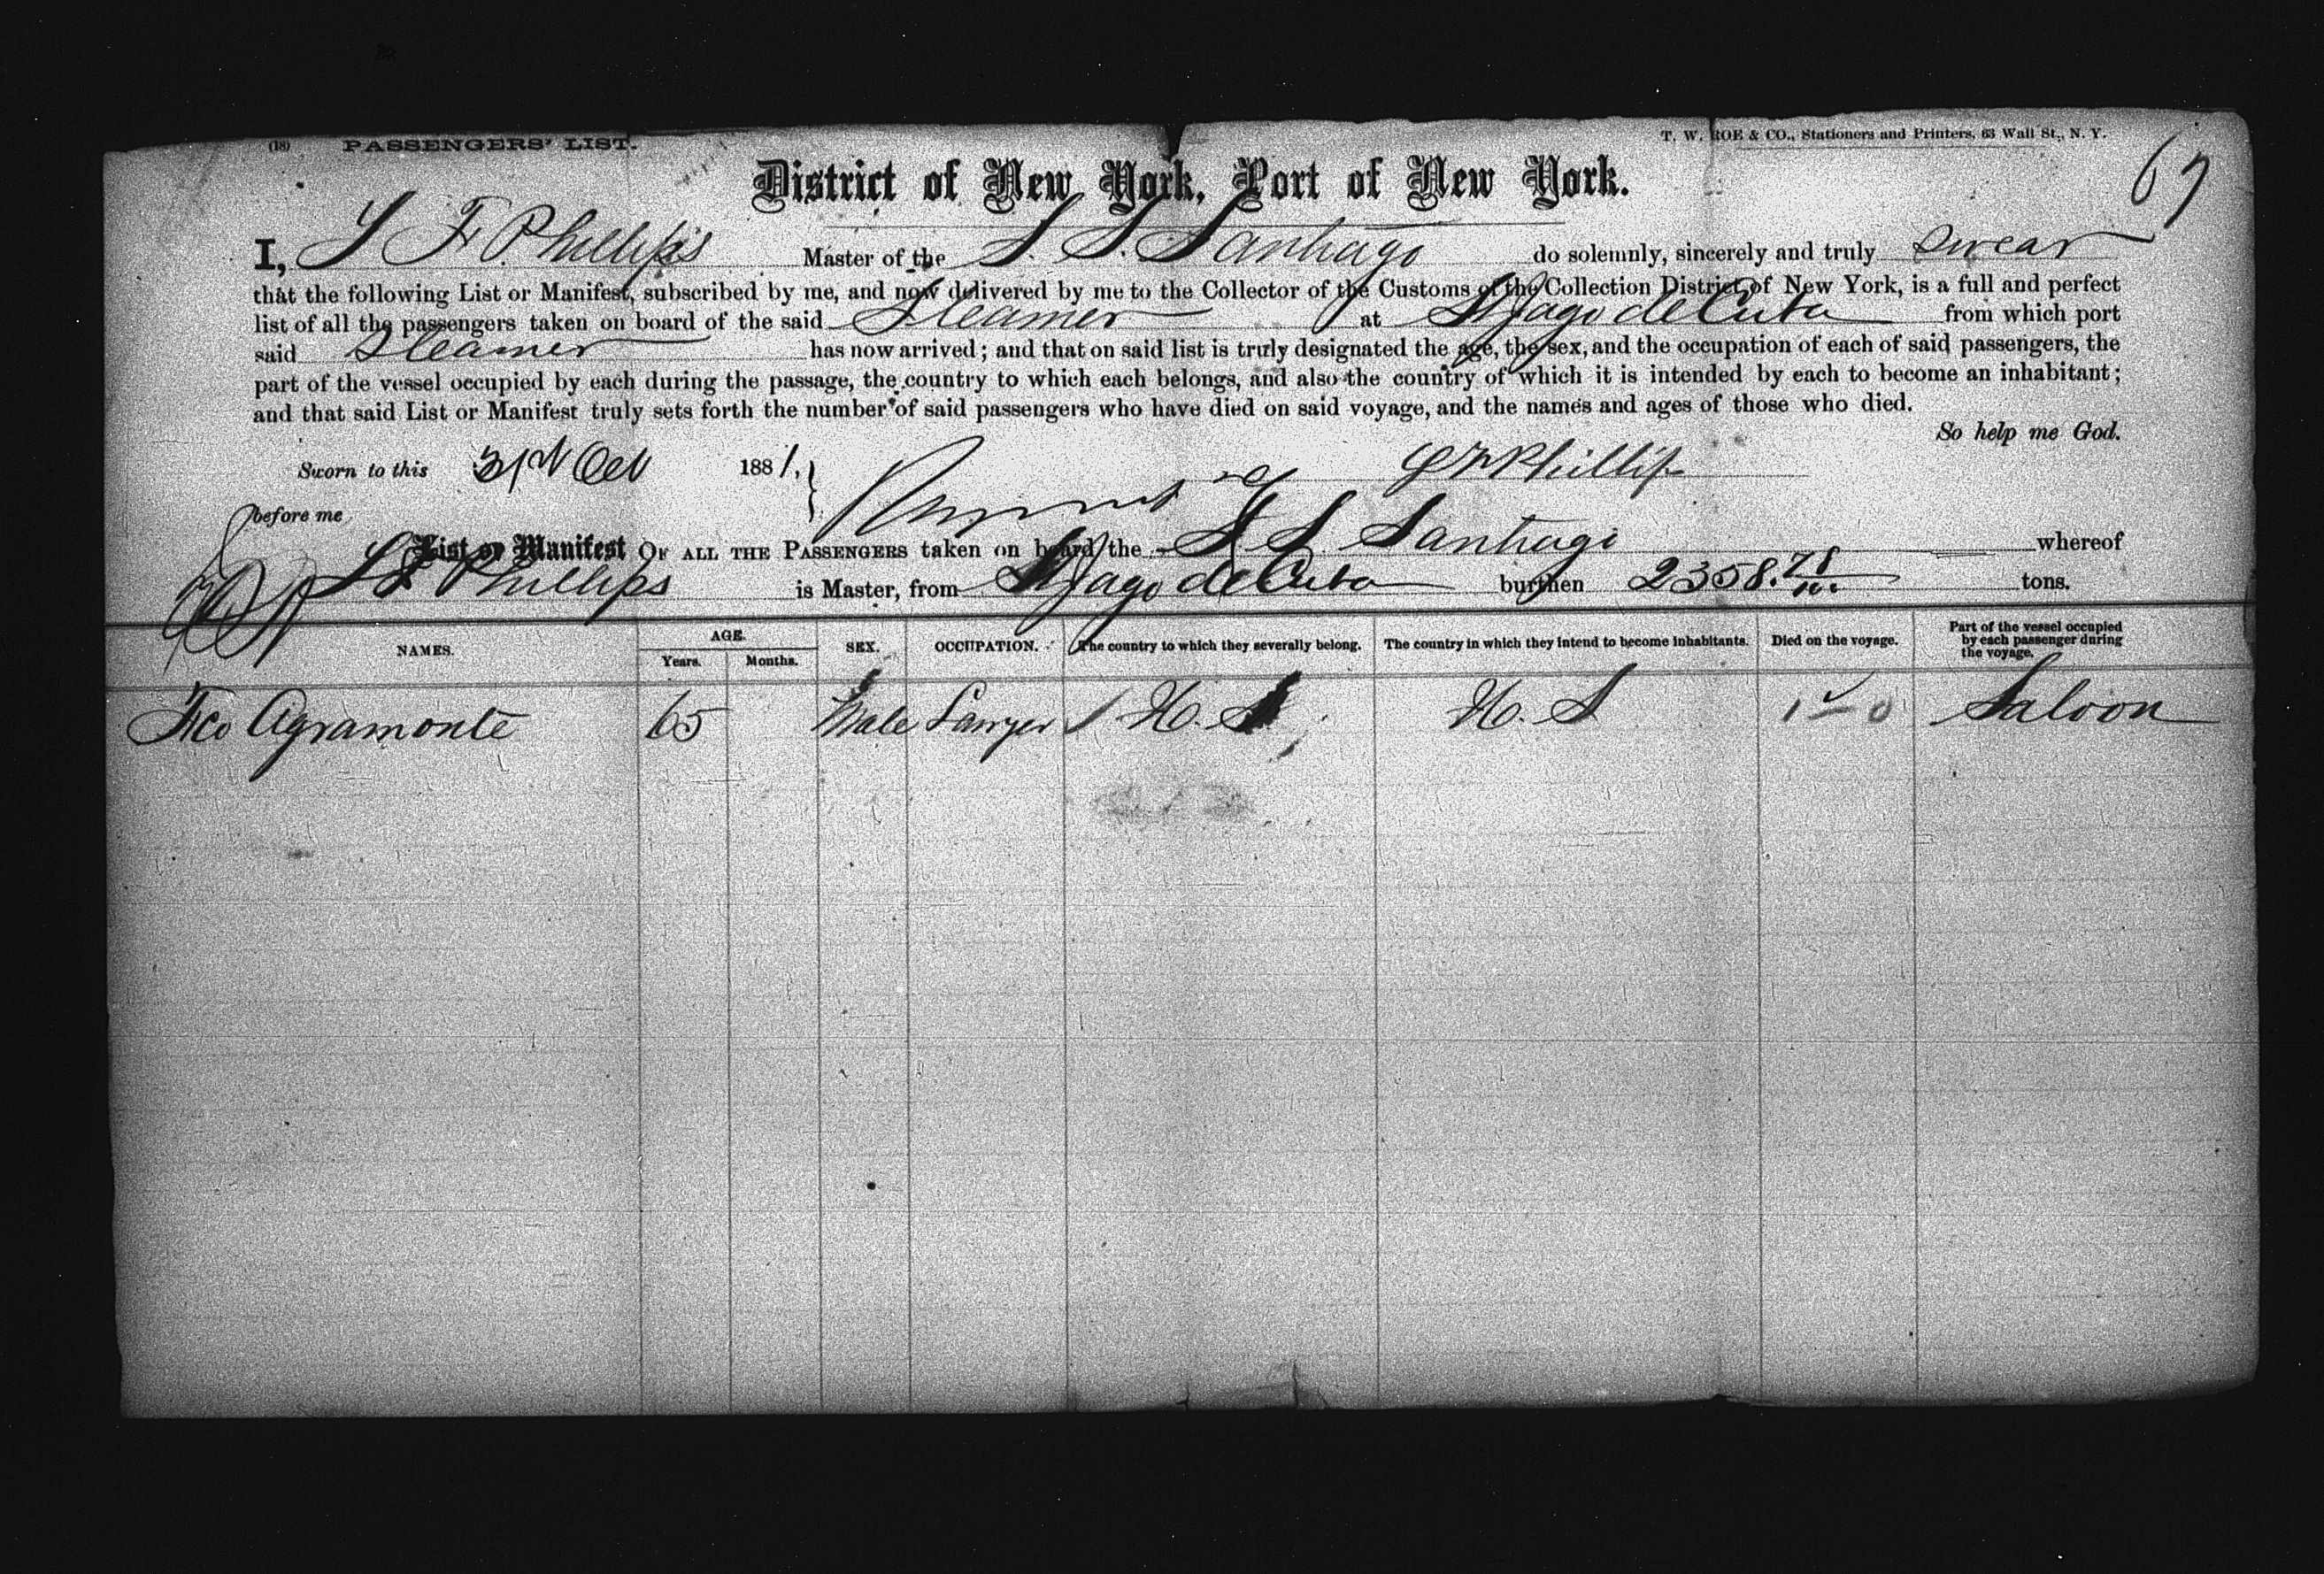 (18) PASSENGERS' LIST.
T. W. ROE & CO., Stationers and Printers, 63 Wall St., N. Y.
67
District of New York, Port of New York.
I, S F Phillips Master of the S. S. Santiago do solemnly, sincerely and truly swear
that the following List or Manifest, subscribed by me, and now delivered by me to the Collector of the Customs of the Collection District of New York, is a full and perfect
list of all the passengers taken on board of the said Steamer at St Jago de Cuba from which port
said Steamer has now arrived; and that on said list is truly designated the age, the sex, and the occupation of each of said passengers, the
part of the vessel occupied by each during the passage, the country to which each belongs, and also the country of which it is intended by each to become an inhabitant;
and that said List or Manifest truly sets forth the number of said passengers who have died on said voyage, and the names and ages of those who died.
So help me God.
Sworn to this 31st Oct 1881,
S F Phillips
before me
List or Manifest OF ALL THE PASSENGERS taken on board the S S Santiago whereof
S F Phillips is Master, from St Jago de Cuba burthen 2358.78/100 tons.
NAMES. AGE. Years. Months. SEX. OCCUPATION. The country to which they severally belong. The country in which they intend to become inhabitants. Died on the voyage. Part of the vessel occupied by each passenger during the voyage.
Fco Agramonte 65 Male Lawyer U. S U. S Saloon